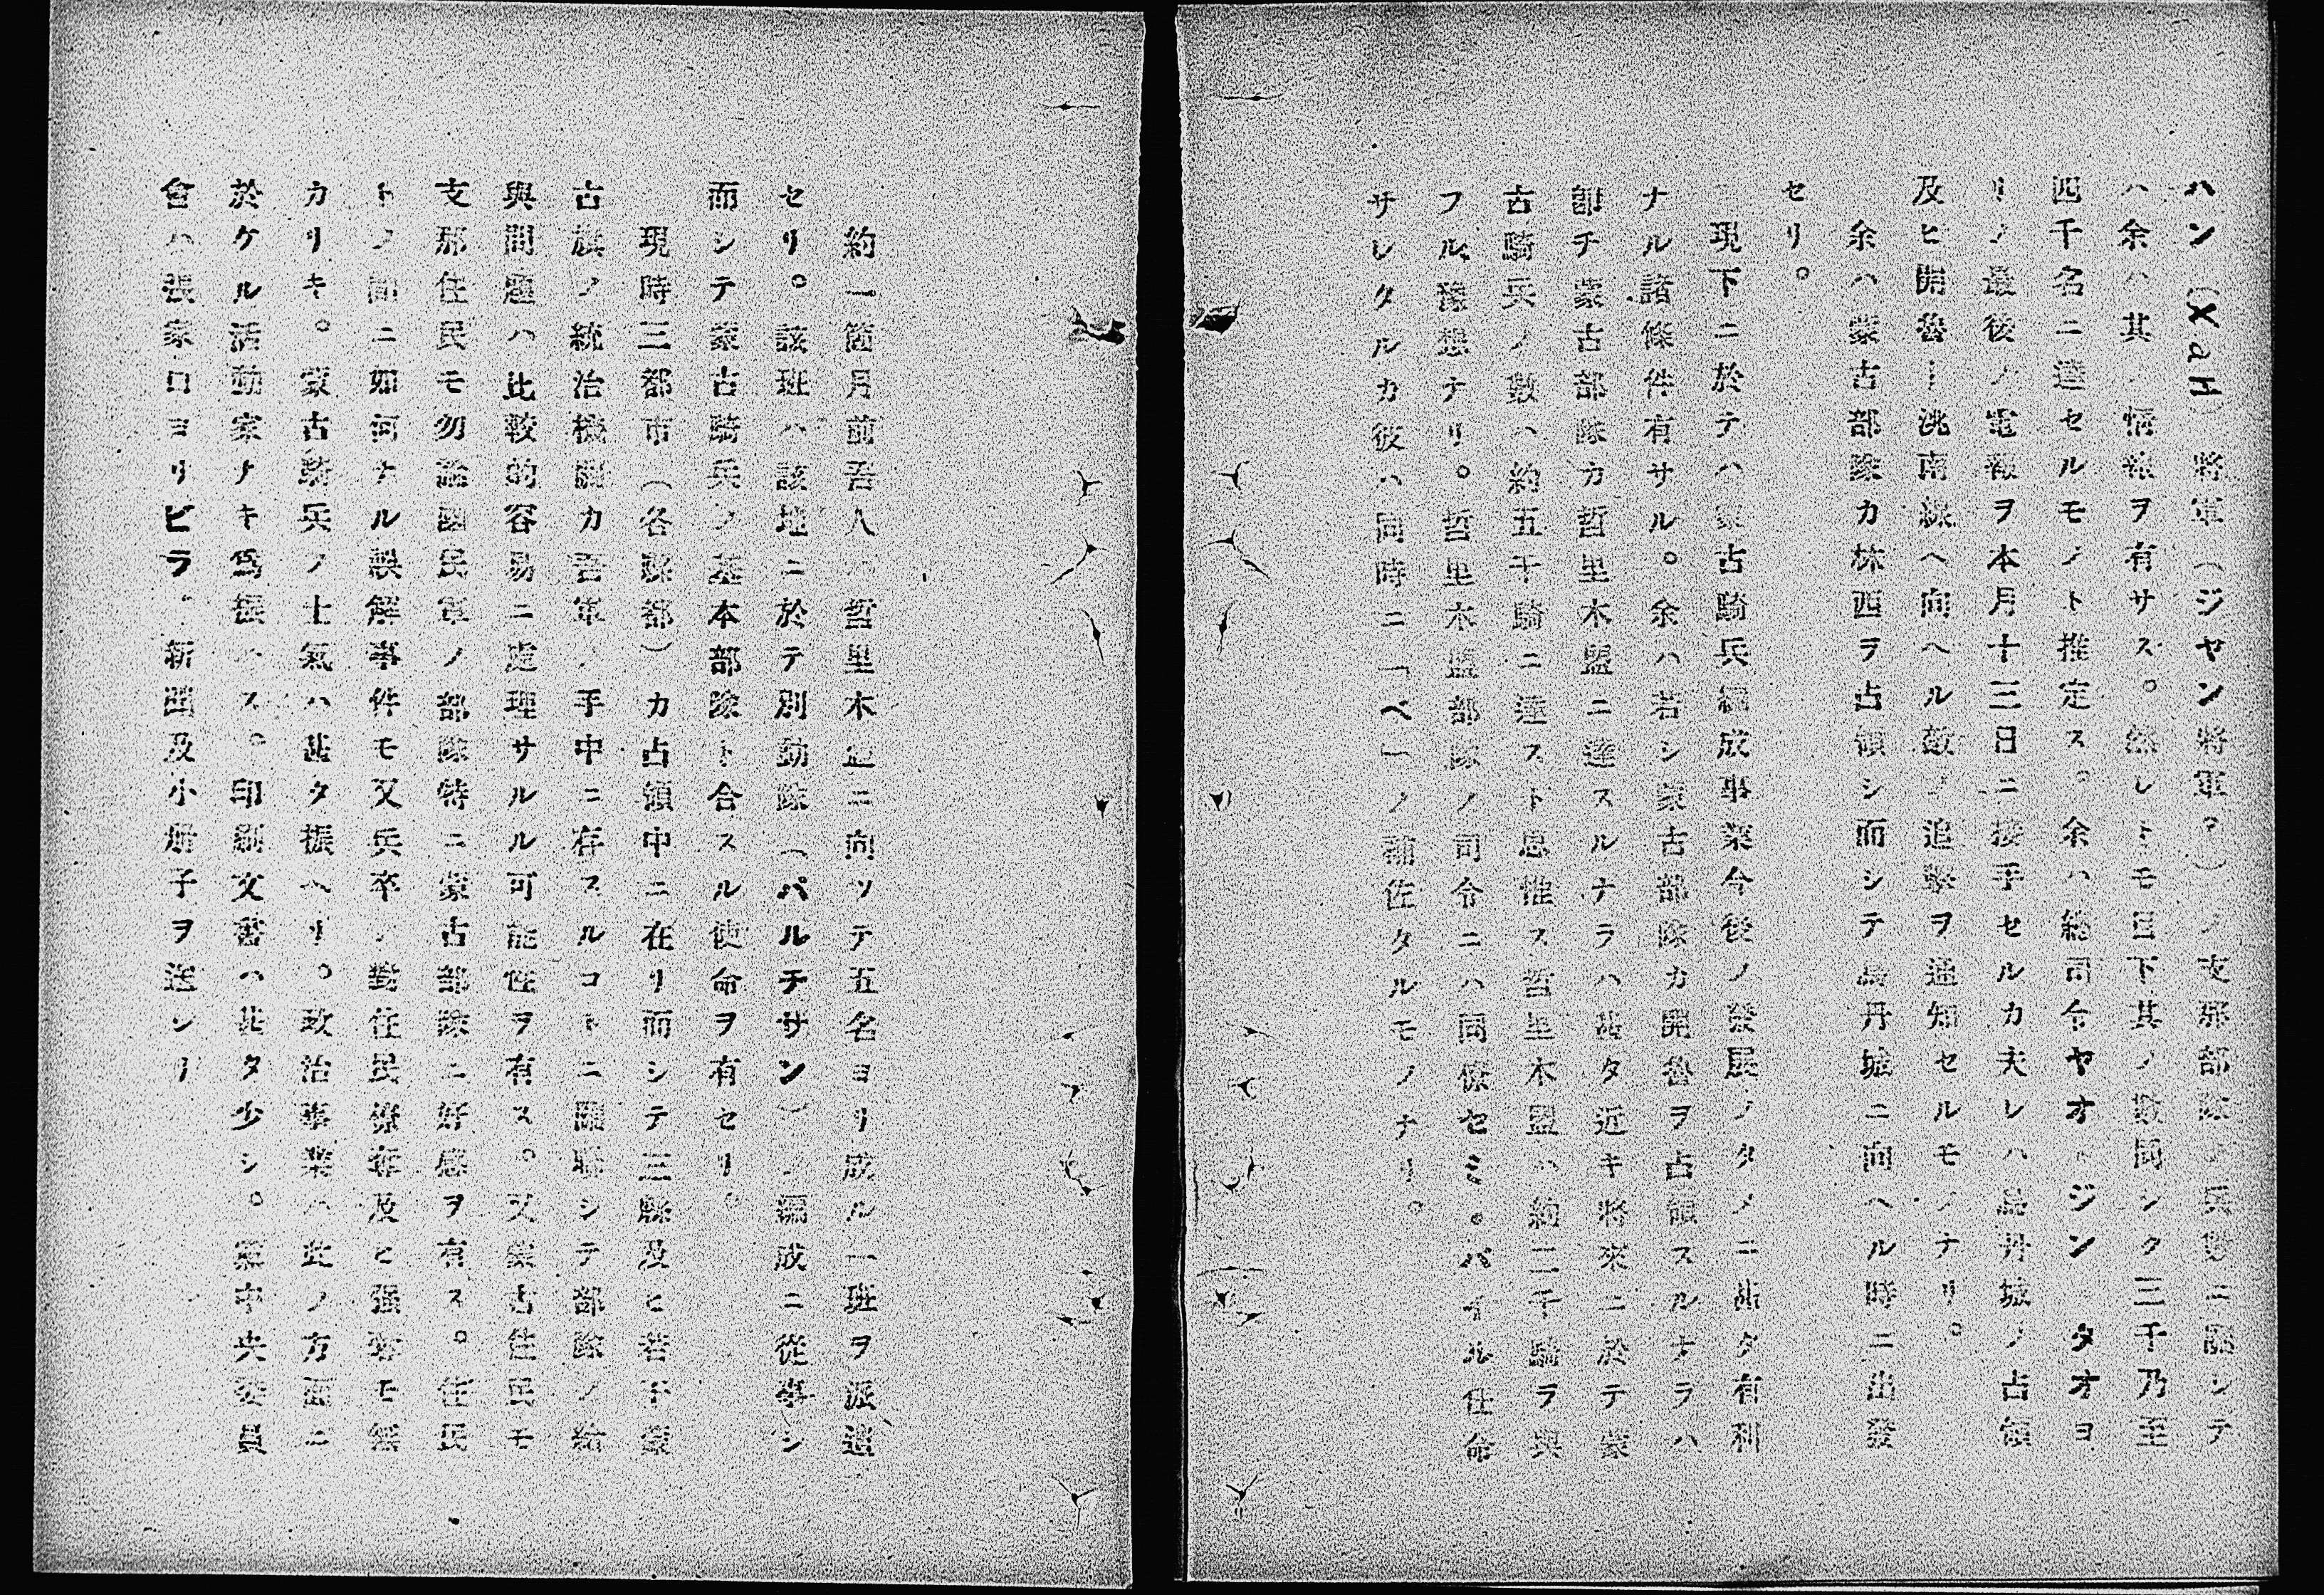 ハン（Хан）將軍（ジヤン將軍？）ノ支那部隊ノ兵數ニ關シテ
ハ余ハ其ノ情報ヲ有サス。然レトモ目下其ノ數同シク三千乃至
四千名ニ達セルモノト推定ス。余ハ總司令ヤオ・ジン・タオヨ
リノ最後ノ電報ヲ本月十三日ニ接手セルカ夫レハ烏丹城ノ占領
及ヒ開魯ー洮南線ヘ向ヘル敵ノ追擊ヲ通知セルモノナリ。
余ハ蒙古部隊カ林西ヲ占領シ而シテ烏丹城ニ向ヘル時ニ出發
セリ。
現下ニ於テハ蒙古騎兵編成事業今後ノ發展ノタメニ甚タ有利
ナル諸條件有サル。余ハ若シ蒙古部隊カ開魯ヲ占領スルナラハ
卽チ蒙古部隊カ哲里木盟ニ達スルナラハ甚タ近キ將來ニ於テ蒙
古騎兵ノ數ハ約五千騎ニ達スト思惟ス哲里木盟ハ約二千騎ヲ與
フル豫想ナリ。哲里木盟部隊ノ司令ニハ同僚セミ・バイル任命
サレタルカ彼ハ同時ニ「ベ」ノ補佐タルモノナリ。
約一箇月前吾人ハ哲里木盟ニ向ツテ五名ヨリ成ル一班ヲ派遣
セリ。該班ハ該地ニ於テ別動隊（パルチサン）ノ編成ニ從事シ
而シテ蒙古騎兵ノ基本部隊ト合スル使命ヲ有セリ。
現時三都市（各縣都）カ占領中ニ在リ而シテ三縣及ヒ若干蒙
古旗ノ統治機關カ吾軍ノ手中ニ存スルコトニ關聯シテ部隊ノ給
與問題ハ比較的容易ニ處理サルル可能性ヲ有ス。又蒙古住民モ
支那住民モ勿論國民軍ノ部隊特ニ蒙古部隊ニ好感ヲ有ス。住民
トノ間ニ如何ナル誤解事件モ又兵卒ノ對住民掠奪及ヒ强奪モ無
カリキ。蒙古騎兵ノ士氣ハ甚タ振ヘリ。政治事業ハ此ノ方面ニ
於ケル活動家ナキ爲振ハス。印刷文書ハ甚タ少シ。黨中央委員
會ハ張家口ヨリビラ、新聞及小册子ヲ送レリ